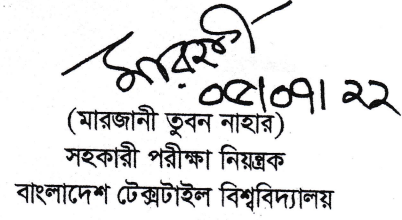 মারজানী
০৫/০৭/২২
(মারজানী তুবন নাহার)
সহকারী পরীক্ষা নিয়ন্ত্রক
বাংলাদেশ টেক্সটাইল বিশ্ববিদ্যালয়